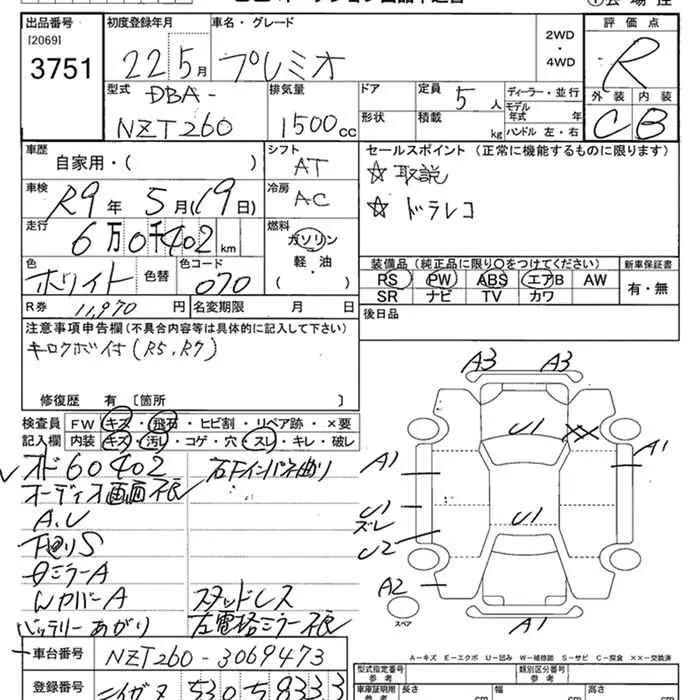 出品番号 初度登録年月 車名・グレード 評価点
[2069]
3751 22 5月 プレミオ 2WD・4WD R
型式 DBA- 排気量 ドア 定員 5人 ディーラー・並行 外装 内装
NZT260 1500cc 形状 積載 kg モデル年式 年 C B
ハンドル 左・右
車歴 自家用・( ) シフト AT セールスポイント (正常に機能するものに限ります)
☆ 取説
車検 R9年 5月(19日) 冷房 AC
☆ ドラレコ
走行 6万0千402km 燃料 ガソリン
軽・油
( )
色 ホワイト 色替 色コード 070
装備品 (純正品に限り○をつけてください) 新車保証書
PS PW ABS エアB AW 有・無
SR ナビ TV カワ
R券 11,970円 名変期限 月 日 後日品
注意事項申告欄 (不具合内容等は具体的に記入して下さい)
キロクボ付 (R5, R7)
修復歴 有 〔箇所 〕
検査員 FW キズ・飛石・ヒビ割・リペア跡・×要
記入欄 内装 キズ・汚れ・コゲ・穴・スレ・キレ・破レ
オド60402 右下インパネ曲り
オーディオ画面不良
A.U
下廻りS
Bミラー A
WカバーA スタッドレス
バッテリーあがり 左電格ミラー不良
A3 A3
U1 XX
A1 A1
U1
ズレ U1
U2
A2
スペア A1
A‐キズ E‐エクボ U‐凹み W‐補修跡 S‐サビ C‐腐食 ××‐交換済
車台番号 NZT260-3069473
型式指定番号 参考 類別区分番号 参考
登録番号 530 58333
車庫証明用 参考 長さ cm 幅 cm 高さ cm